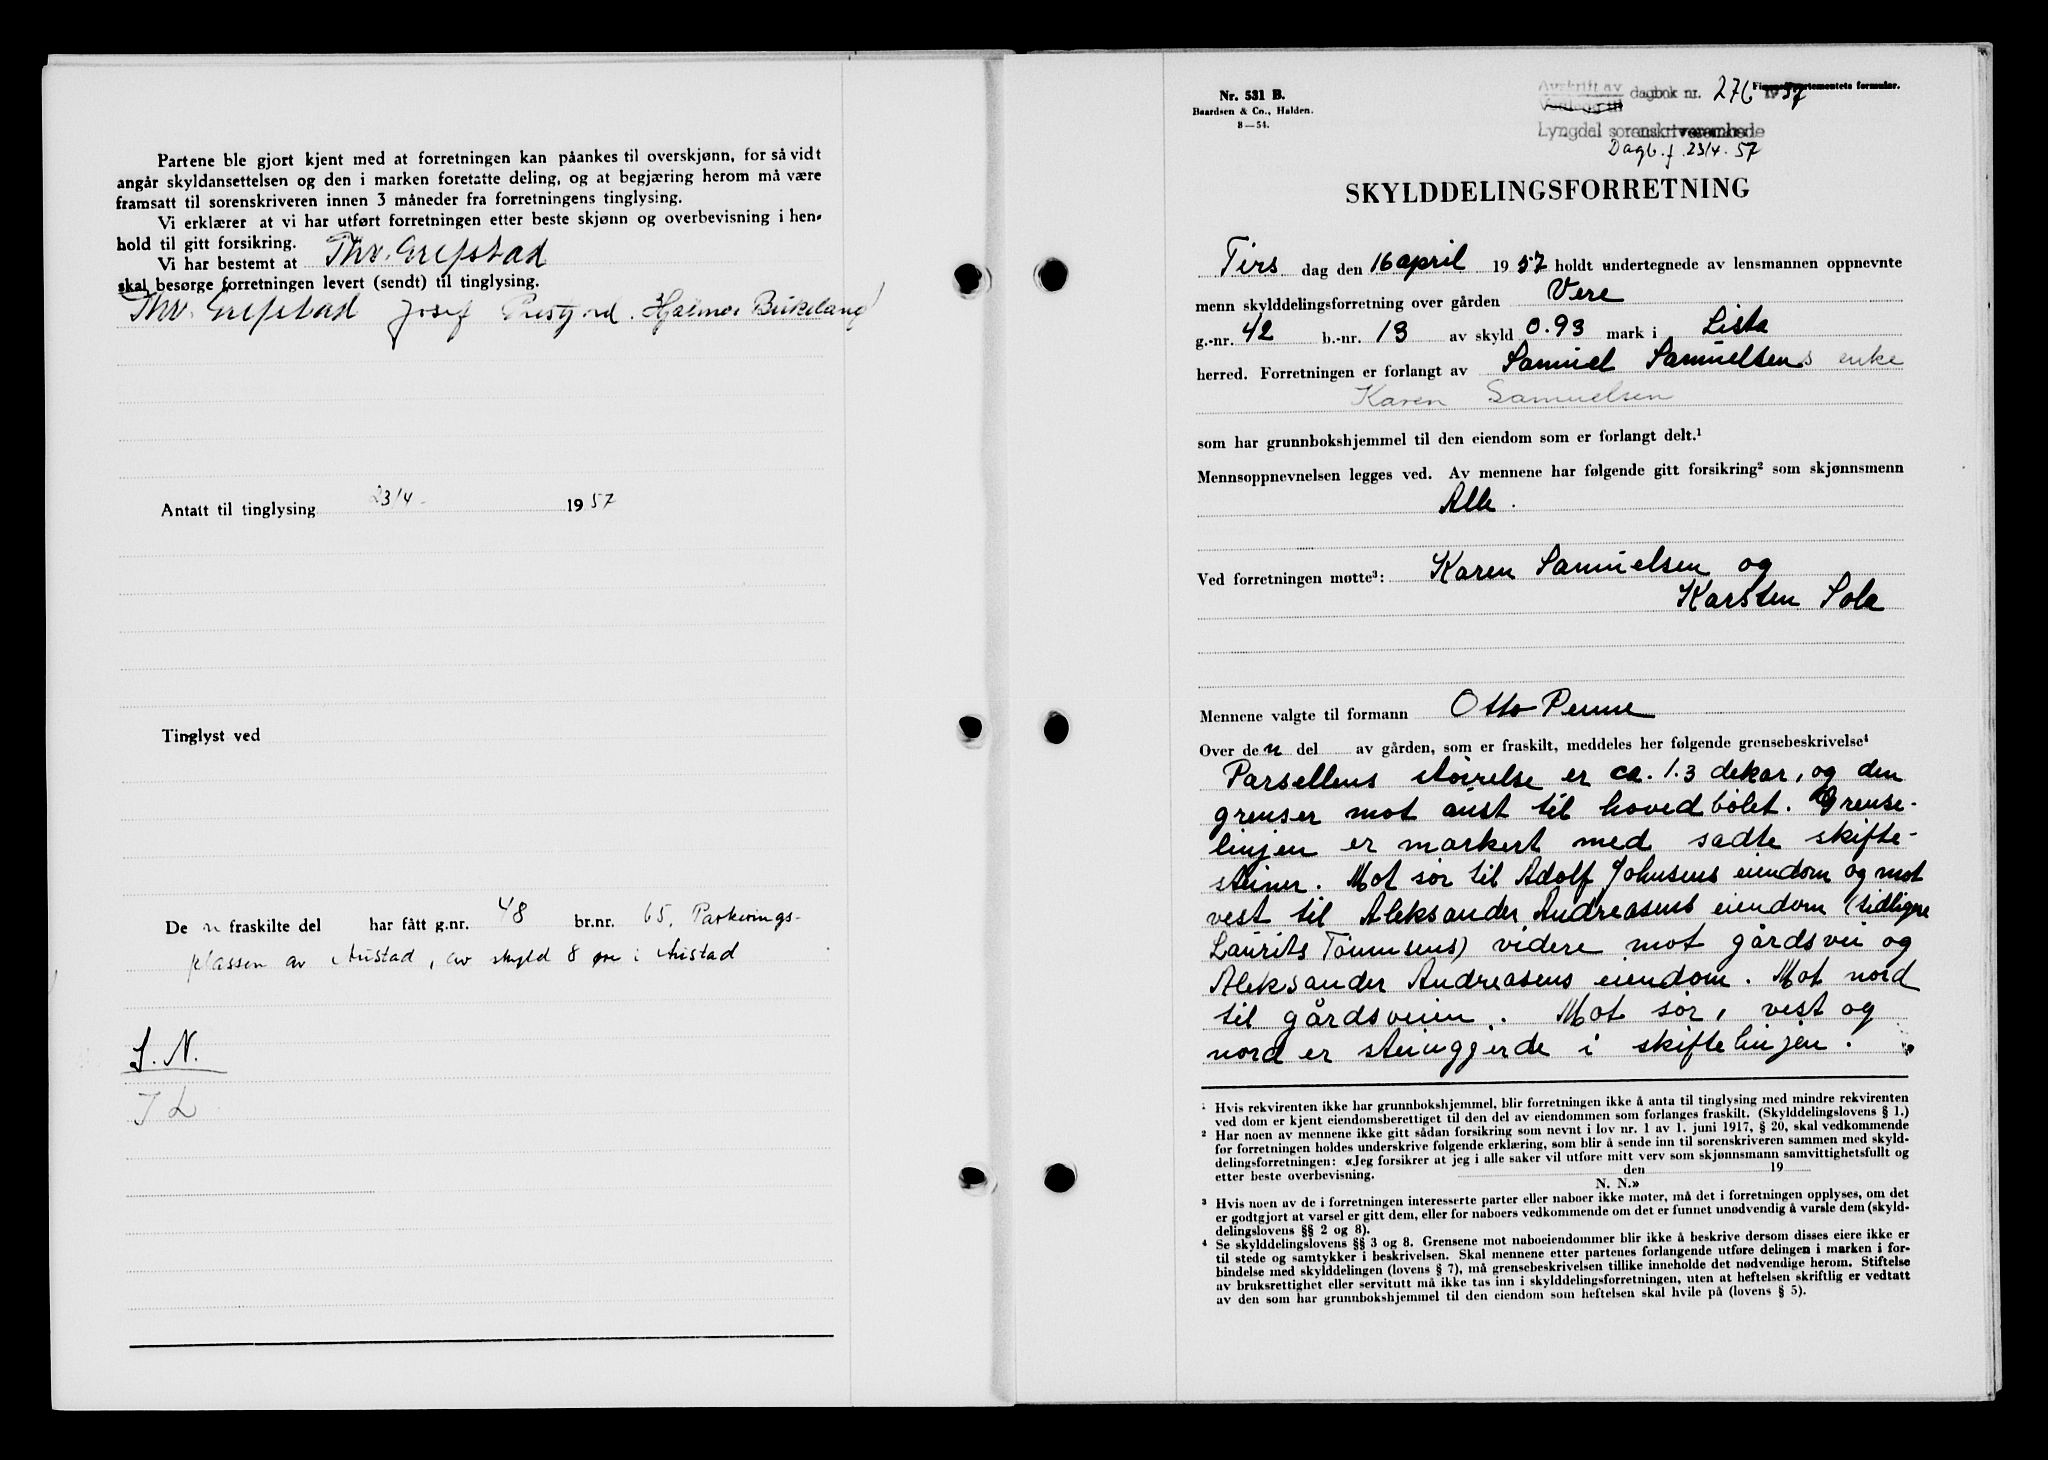 Partene ble gjort kjent med at forretningen kan påankes til overskjønn, for så vidt
angår skyldansettelsen og den i marken foretatte deling, og at begjæring herom må være
framsatt til sorenskriveren innen 3 måneder fra forretningens tinglysing.
Vi erklærer at vi har utført forretningen etter beste skjønn og overbevisning i hen-
hold til gitt forsikring.
Vi har bestemt at Thv. Grefstad
skal besørge forretningen levert (sendt) til tinglysing.
Thv. Grefstad Josef Hjalmar Birkeland
Antatt til tinglysing 23/4- 1957
Tinglyst ved
De n fraskilte del har fått g.nr. 48 br.nr. 65, Parkerings-
plassen av Austad, av skyld 8 øre i Austad
S. N.
Nr. 531 B.
Baardsen & Co., Halden.
8—54.
Finansdepartementets formular.
Avskrift av dagbok nr. 276 1957
Vedlegg til
Lyngdal sorenskriverembede
Dagb. f. 23/4-57
SKYLDDELINGSFORRETNING
Tirs dag den 16 april 1957 holdt undertegnede av lensmannen oppnevnte
menn skylddelingsforretning over gården Vere
g.-nr. 42 b.-nr. 13 av skyld 0.93 mark i Lista
herred. Forretningen er forlangt av Samuel Samuelsens enke
Karen Samuelsen
som har grunnbokshjemmel til den eiendom som er forlangt delt.¹
Mennsoppnevnelsen legges ved. Av mennene har følgende gitt forsikring² som skjønnsmenn
Alle.
Ved forretningen møtte³: Karen Samuelsen og
Karsten Sole
Mennene valgte til formann Otto Penne
Over den del av gården, som er fraskilt, meddeles her følgende grensebeskrivelse⁴
Parsellens støirelse er ca. 1.3 dekar, og den
grenser mot aust til hovedbølet. Grense-
linjen er markert med sadte skifte-
steiner. Mot sør til Adolf Johnsens eiendom og mot
vest til Aleksander Andreasens eiendom (tidligere
Laurits Tønnesens) videre mot gårdsvei og
Aleksander Andreasens eiendom. Mot nord
til gårdsveien. Mot sør, vest og
nord er steinggjerde i skiftelinjen.
¹ Hvis rekvirenten ikke har grunnbokshjemmel, blir forretningen ikke å anta til tinglysing med mindre rekvirenten
ved dom er kjent eiendomsberettiget til den del av eiendommen som forlanges fraskilt. (Skylddelingslovens § 1.)
² Har noen av mennene ikke gitt sådan forsikring som nevnt i lov nr. 1 av 1. juni 1917, § 20, skal vedkommende
før forretningen holdes underskrive følgende erklæring, som blir å sende inn til sorenskriveren sammen med skyld-
delingsforretningen: «Jeg forsikrer at jeg i alle saker vil utføre mitt verv som skjønnsmann samvittighetsfullt og
etter beste overbevisning. den 19
N. N.»
³ Hvis noen av de i forretningen interesserte parter eller naboer ikke møter, må det i forretningen opplyses, om det
er godtgjort at varsel er gitt dem, eller for naboers vedkommende om det er funnet unødvendig å varsle dem (skyld-
delingslovens §§ 2 og 8).
⁴ Se skylddelingslovens §§ 3 og 8. Grensene mot naboeiendommer blir ikke å beskrive dersom disses eiere ikke er
til stede og samtykker i beskrivelsen. Skal mennene etter partenes forlangende utføre delingen i marken i for-
bindelse med skylddelingen (lovens § 7), må grensebeskrivelsen tillike inneholde det nødvendige herom. Stiftelse
av bruksrettighet eller servitutt må ikke tas inn i skylddelingsforretningen, uten at heftelsen skriftlig er vedtatt
av den som har grunnbokshjemmel til den eiendom som heftelsen skal hvile på (lovens § 5).